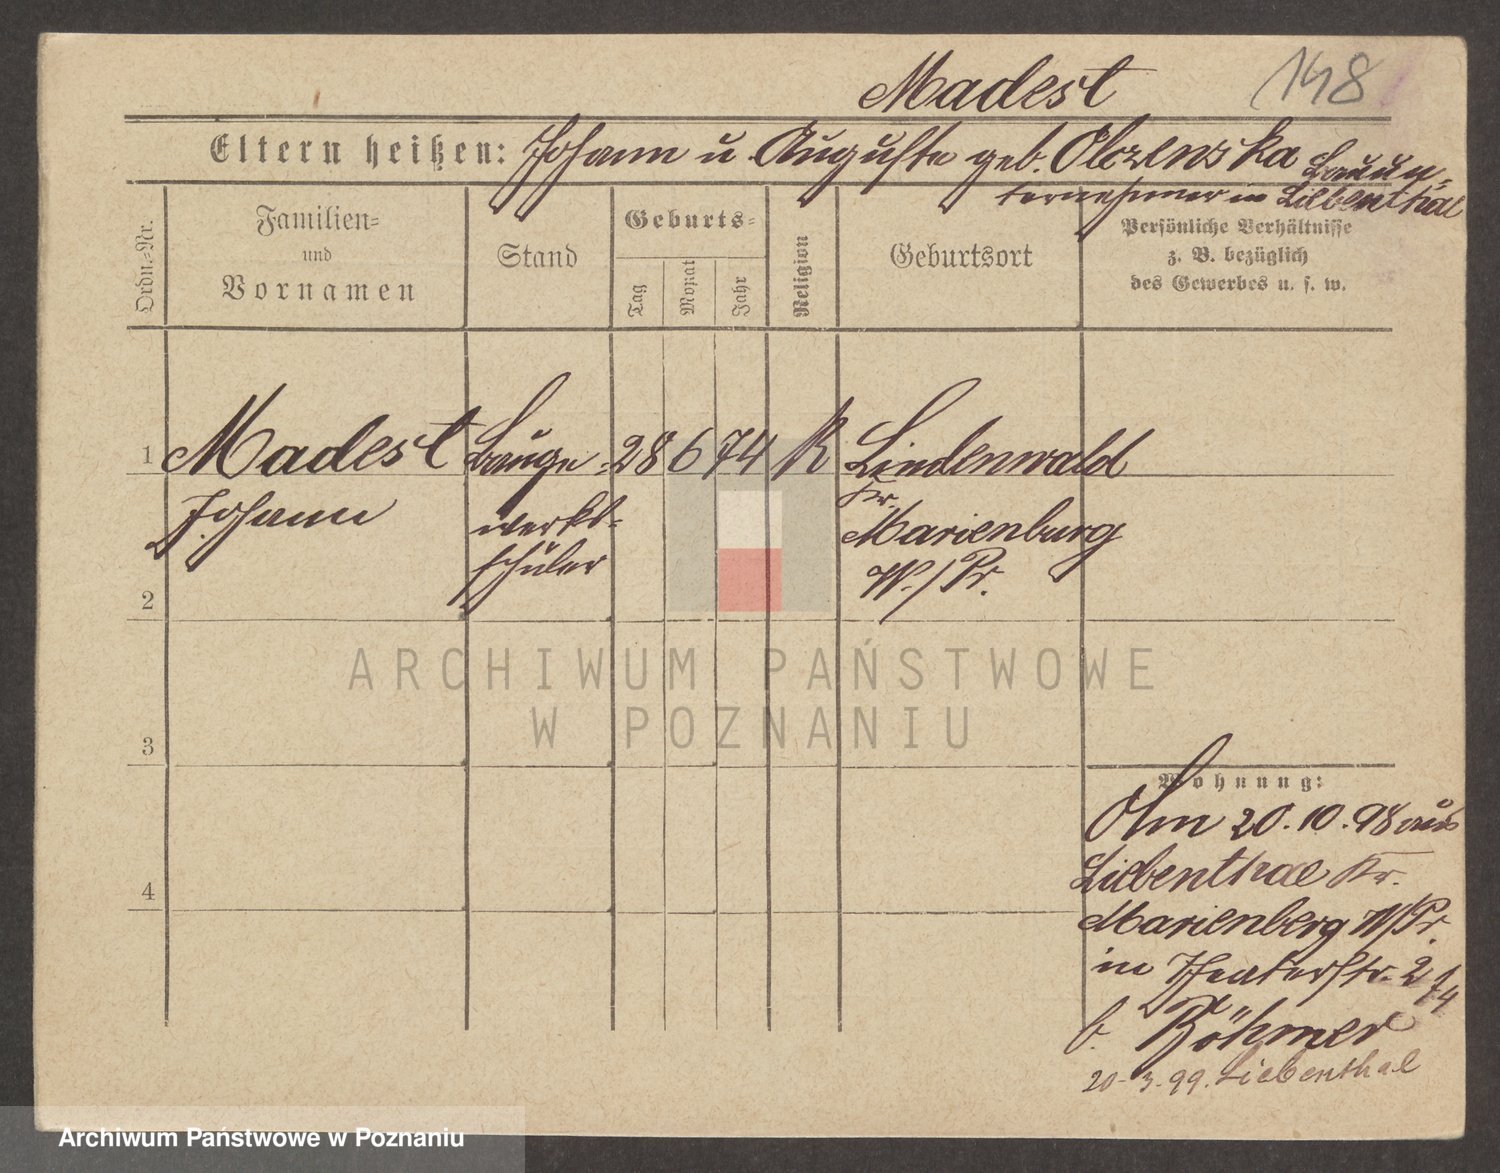 Madest 148
Eltern heißen: Johann u. Auguste geb. Olszenska Bauun-
ternehmer in Liebenthal
Ordn.-Nr.
Familien-
und
Vornamen
Stand
Geburts-
Tag
Monat
Jahr
Religion
Geburtsort
Persönliche Verhältnisse
z. B. bezüglich
des Gewerbes u. s. w.
1 Madest Bauge- 28 6 74 K Lindenwald
Johann werks- Kr.
schüler Marienburg
W./Pr.
2
ARCHIWUM PAŃSTWOWE
W POZNANIU
3
Wohnung:
Am 20.10.98 aus
Liebenthal Kr.
4
Marienberg W/Pr.
in Theaterstr. 2
b. Böhmer
20-3.99. Liebenthal
Archiwum Państwowe w Poznaniu